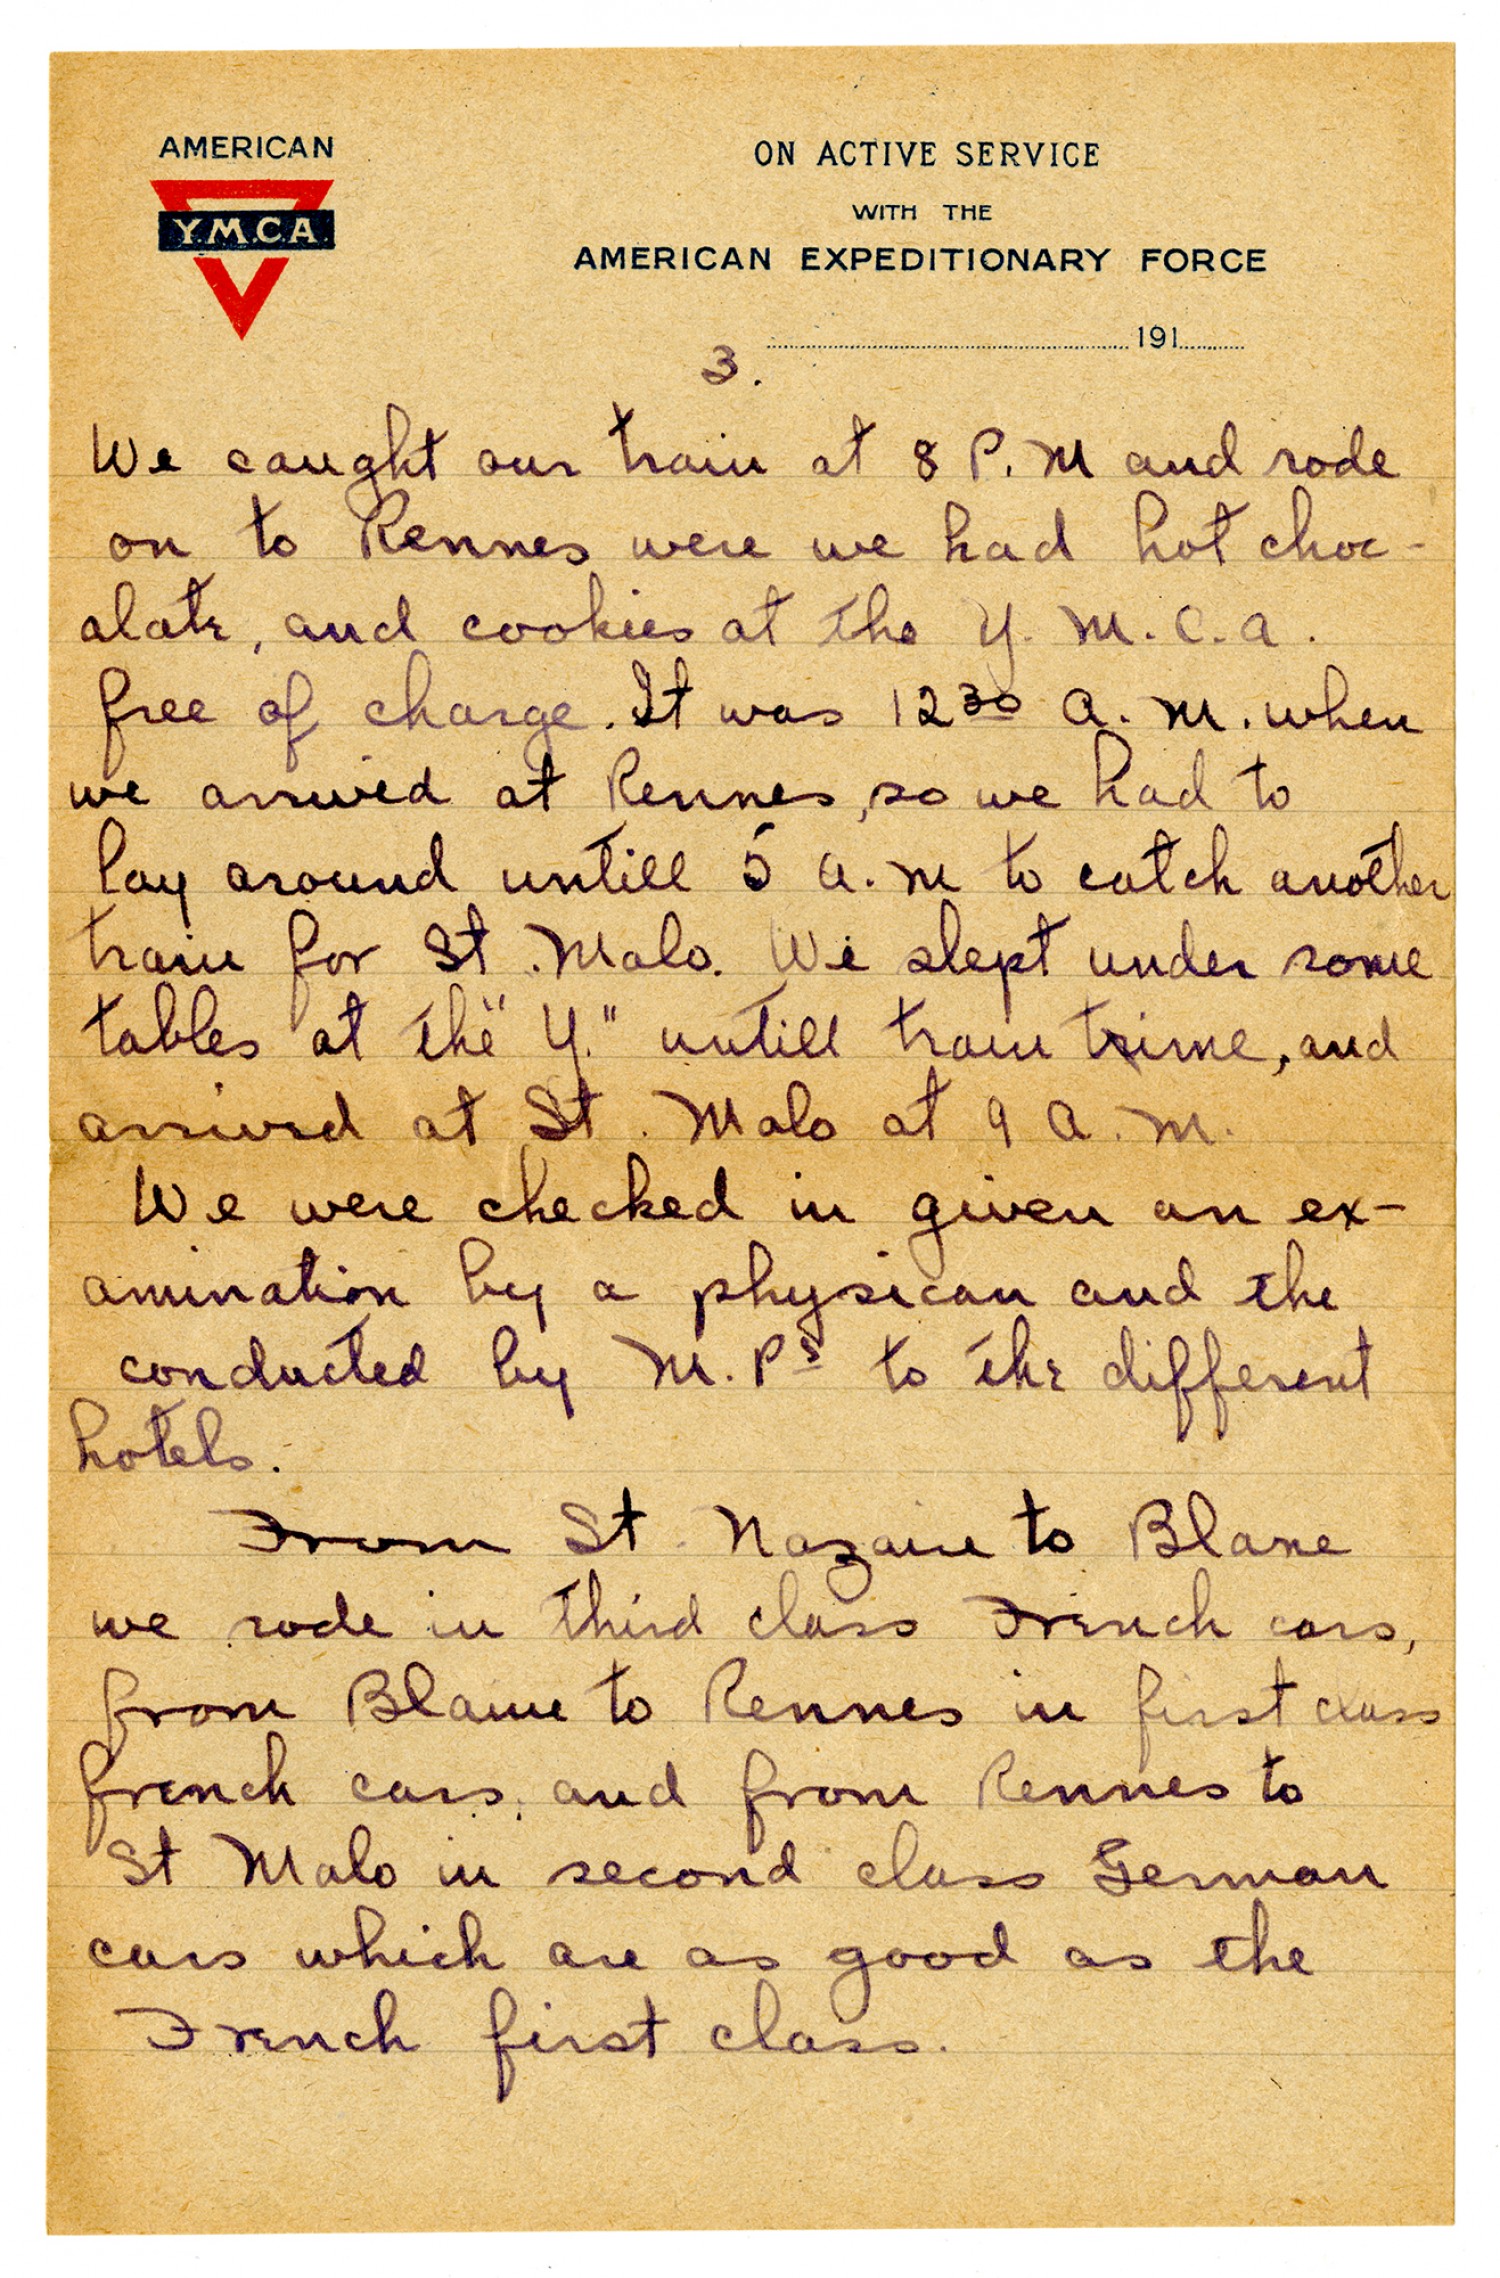 AMERICAN
Y.M.C.A.
ON ACTIVE SERVICE
WITH THE
AMERICAN EXPEDITIONARY FORCE
191
3.
We caught our train at 8 P.M and rode
on to Rennes were we had hot choc-
alate, and cookies at the Y.M.C.A.
free of charge. It was 12 30 A.M. when
we arrived at Rennes, so we had to
lay around untill 5 A.M to catch another
train for St. Malo. We slept under some
tables at the "Y." untill train time, and
arrived at St. Malo at 9 A.M.
We were checked in given an ex-
amination by a physican and the
conducted by M.Ps to the different
hotels.
From St. Nazaire to Blane
we rode in third class French cars,
from Blaine to Rennes in first class
french cars, and from Rennes to
St Malo in second class German
cars which are as good as the
French first class.